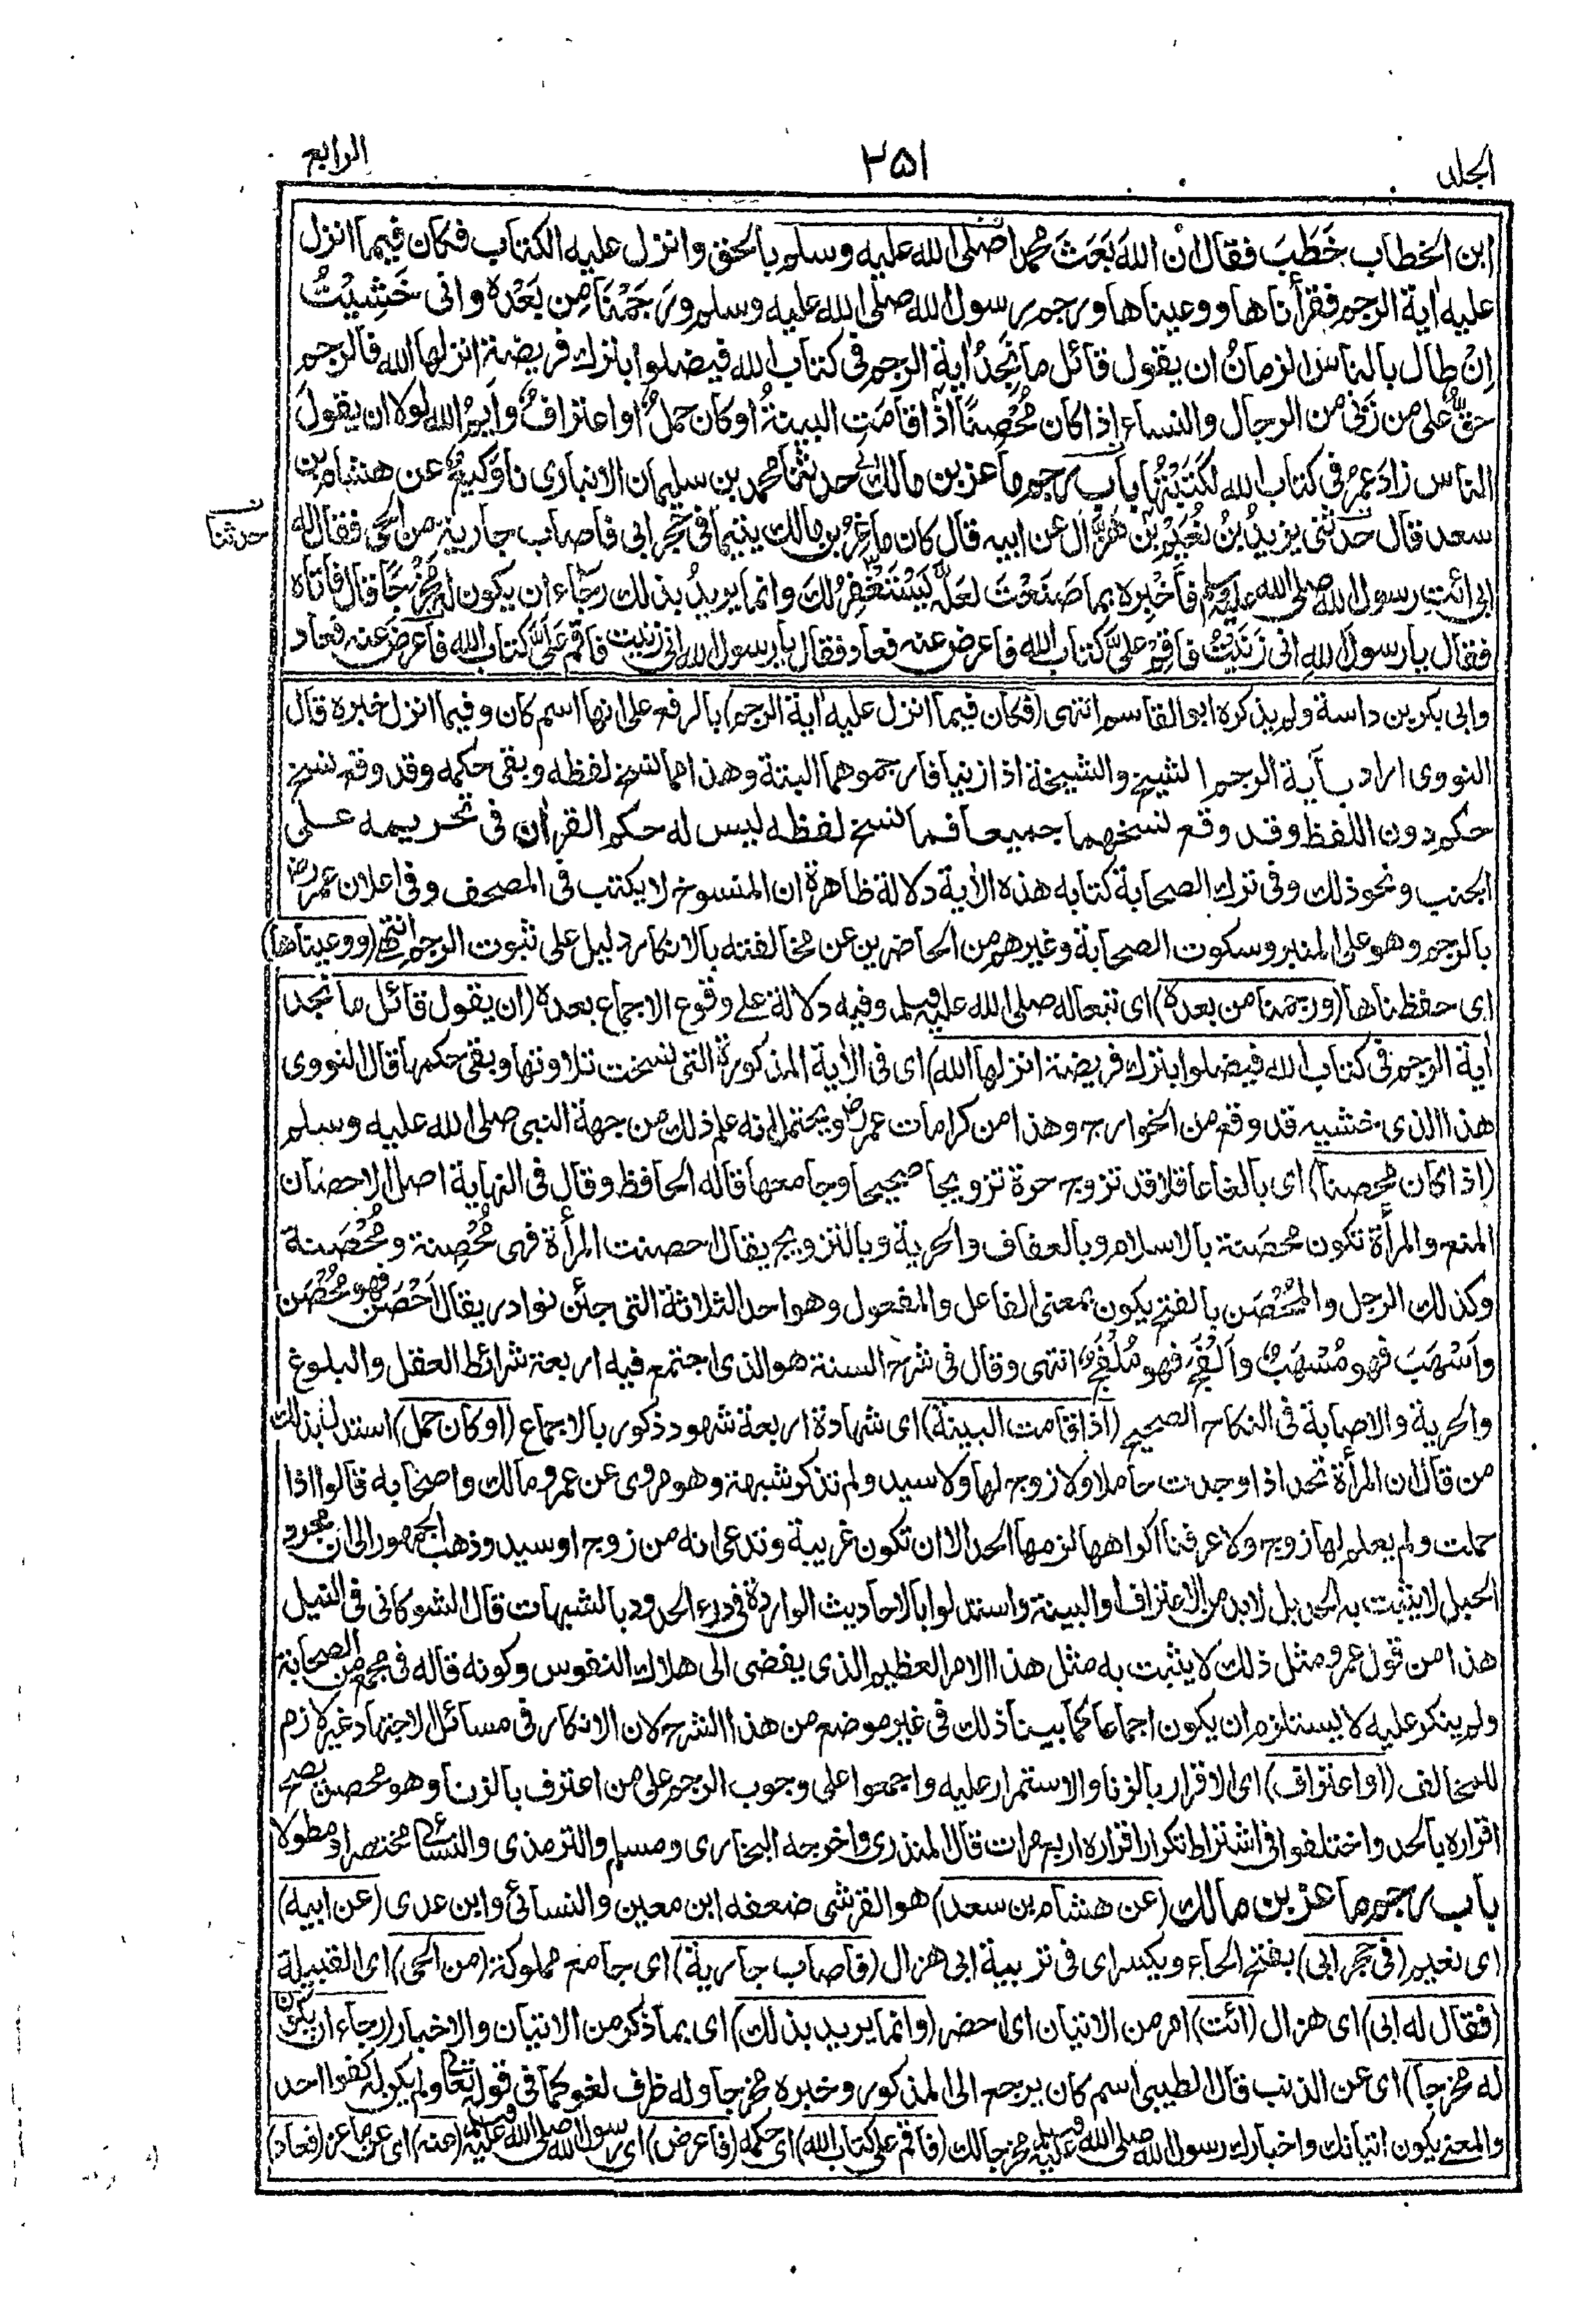 الجلد ٢٥١ الرابع
ابن الخطاب خَطَبَ فقال اِنَّ اللهَ بَعَثَ محمدا صلى الله عليه وسلم بالحق وانزل عليه الكتاب فكان فيما انزل
عليه اٰية الرجم فقرأناها ووعيناها ورجم رسول الله صلى الله عليه وسلم ورَجَمْنَا مِن بَعْدِه وانى خَشِيْتُ
اِنْ طال بالناس الزمانُ ان يقول قائل ما نَجِدُ اٰية الرجم فى كتاب الله فيضلوا بترك فريضة انزلها الله فالرجم
حقٌّ على من زَنٰى من الرجال والنساء اِذا كان مُحْصِنًا اذا قامَتِ البينةُ او كان حملٌ او اعترافٌ وايمُ اللهِ لولا ان يقولَ
الناس زاد عمرُ فى كتاب الله لكَتَبْتُها باب رجم ماعز بن مالك حدثنا محمد بن سليمان الانبارى نا وكيعٌ عن هشام بن
سعد قال حدثنى يزيدُ بنُ نُعَيْمِ بْن هَزَّال عن ابيه قال كان ماعِزُ بن مالك يتيما فى حَجْر ابى فاصاب جارية من الحى فقال له
حدثنا
ابى ائتِ رسول الله صلى الله عليه وسلم فأخْبِرْه بما صَنَعْتَ لعَلَّه يَسْتَغْفِرُ لك وانما يريدُ بذلك رجاء ان يكون له مَخْرَجًا قال فاتاه
فقال يا رسول اللهِ انى زَنَيْتُ فاَقِمْ علىَّ كتابَ الله فاعرض عنه فعاد فقال يا رسول الله انى زنيت فاقم علىَّ كتاب الله فاعرض عنه فعاد
وابى بكر بن داسة ولم يذكره ابو القاسم انتهى (فكان فيما انزل عليه اٰية الرجم) بالرفع على انها اسم كان وفيما انزل خبره قال
النووى اراد بآية الرجم الشيخ والشيخة اذا زنيا فارجموهما البتة وهذا مما نسخ لفظه وبقى حكمه وقد وقع نسخ
حكم دون اللفظ وقد وقع نسخهما جميعا فما نسخ لفظه ليس له حكم القراٰن فى تحريمه على
الجنب ونحو ذلك وفى ترك الصحابة كتابه هذه الاٰية دلالة ظاهرة ان المنسوخ لا يكتب فى المصحف وفى اعلان عمر رض
بالرجم وهو على المنبر وسكوت الصحابة وغيرهم من الحاضرين عن مخالفته بالانكار دليل على ثبوت الرجم انتهى (ووعيناها)
اى حفظناها (ورجمنا من بعده) اى تبعا له صلى الله عليه وسلم وفيه دلالة على وقوع الاجماع بعده (ان يقول قائل ما نجد
اٰية الرجم فى كتاب الله فيضلوا بترك فريضة انزلها الله) اى فى الاٰية المذكورة التى نسخت تلاوتها وبقى حكمها قال النووى
هذا الذى خشيه قد وقع من الخوارج وهذا من كرامات عمر رض ويحتمل انه علم ذلك من جهة النبى صلى الله عليه وسلم
(اذا كان محصنا) اى بالغا عاقلا قد تزوج حرة تزويجا صحيحا وجامعها قاله الحافظ وقال فى النهاية اصل الاحصان
المنع والمرأة تكون محصنة بالاسلام وبالعفاف والحرية وبالتزويج يقال احصنت المرأة فهى مُحْصِنة ومُحْصَنة
وكذلك الرجل والمُحْصَن بالفتح يكون بمعنى الفاعل والمفعول وهو احد الثلاثة التى جئن نوادر يقال اَحْصَن فهو مُحْصَن
واَسْهَبَ فهو مُسْهَبٌ واَلْفَجَ فهو مُلْفَجٌ انتهى وقال فى شرح السنة هو الذى اجتمع فيه اربعة شرائط العقل والبلوغ
والحرية والاصابة فى النكاح الصحيح (اذا قامت البينة) اى شهادة اربعة شهود ذكور بالاجماع (او كان حمل) استدل بذلك
من قال ان المرأة تحد اذا وجدت حاملا ولا زوج لها ولا سيد ولم تذكر شبهة وهو مروى عن عمر ومالك واصحابه قالوا اذا
حملت ولم يعلم لها زوج ولا عرفنا اكراهها لزمها الحد الا ان تكون غريبة وتدعى انه من زوج او سيد وذهب الجمهور الى ان مجرد
الحبل لا يثبت به الحد بل لابد من الاعتراف او البينة واستدلوا بالاحاديث الواردة فى درء الحدود بالشبهات قال الشوكانى فى النيل
هذا من قول عمر ومثل ذلك لا يثبت به مثل هذا الامر العظيم الذى يفضى الى هلاك النفوس وكونه قاله فى مجمع من الصحابة
ولم ينكر عليه لا يستلزم ان يكون اجماعا كما بينا ذلك فى غير موضع من هذا الشرح لان الانكار فى مسائل الاجتهاد غير لازم
للمخالف (او اعتراف) اى الاقرار بالزنا والاستمرار عليه واجمعوا على وجوب الرجم على من اعترف بالزنا وهو محصن يصح
اقراره بالحد واختلفوا فى اشتراط تكرار اقراره اربع مرات قال المنذرى واخرجه البخارى ومسلم والترمذى والنسائى مختصرا ومطولا
باب رجم ماعز بن مالك (عن هشام بن سعد) هو القرشى ضعفه ابن معين والنسائى وابن عدى (عن ابيه)
اى نعيم (فى حجر ابى) بفتح الحاء ويكسر اى فى تربية ابى هزال (فاصاب جارية) اى جامع مملوكة (من الحى) اى القبيلة
(فقال له ابى) اى هزال (ائت) امر من الاتيان اى احضر (وانما يريد بذلك) اى بما ذكر من الاتيان والاخبار (رجاء ان يكون
له مخرجا) اى عن الذنب قال الطيبى اسم كان يرجع الى المذكور وخبره مخرجا وله ظرف لغو كما فى قوله تعالى ولم يكن له كفوا احد
والمعنى يكون اتيانك واخبارك رسول الله صلى الله عليه وسلم مخرجا لك (فاقم على كتاب الله) اى حكمه (فاعرض) اى رسول الله صلى الله عليه وسلم (عنه) اى عن ماعز (فعاد)